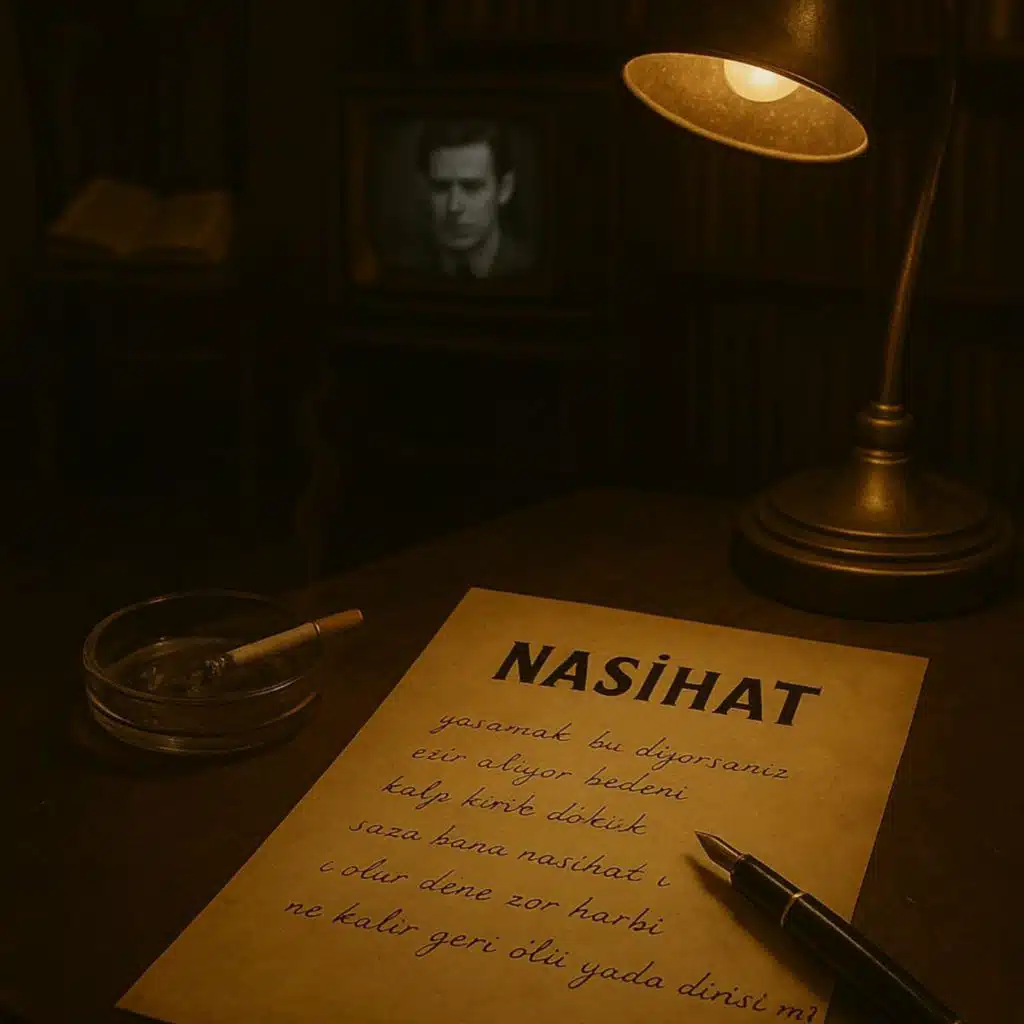 NASİHAT
yasamak bu diyorsaniz
ezir aliyor bedeni
kalp kirik dökük
saza bana nasihat ι
ι olur dene zor harbi
ne kalir geri ölü yada dirisi mı